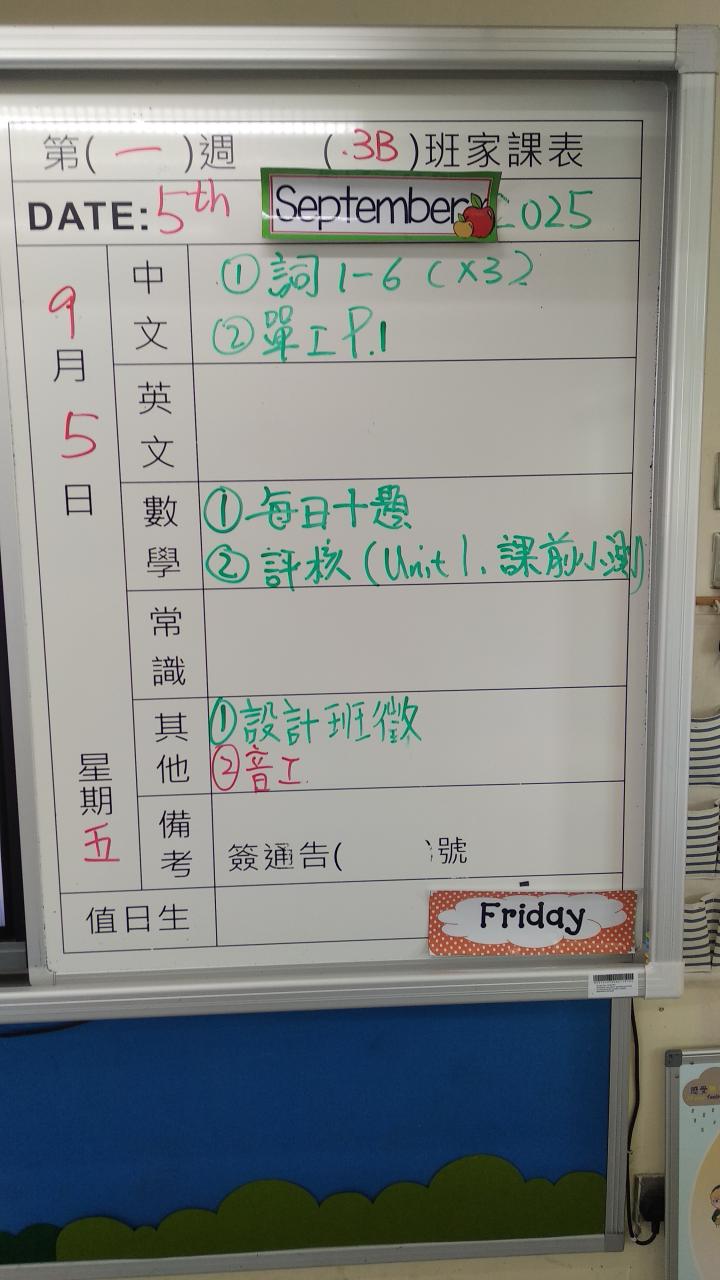 第( 一 )週 ( 3B )班家課表
DATE: 5th September 2025
9月5日
星期五
中文
①詞1-6 (×3)
②單工P.1
英文
數學
①每日十題
②評核(Unit 1. 課前小測)
常識
其他
①設計班徵
②音工
備考
簽通告( )號
值日生
Friday
感受